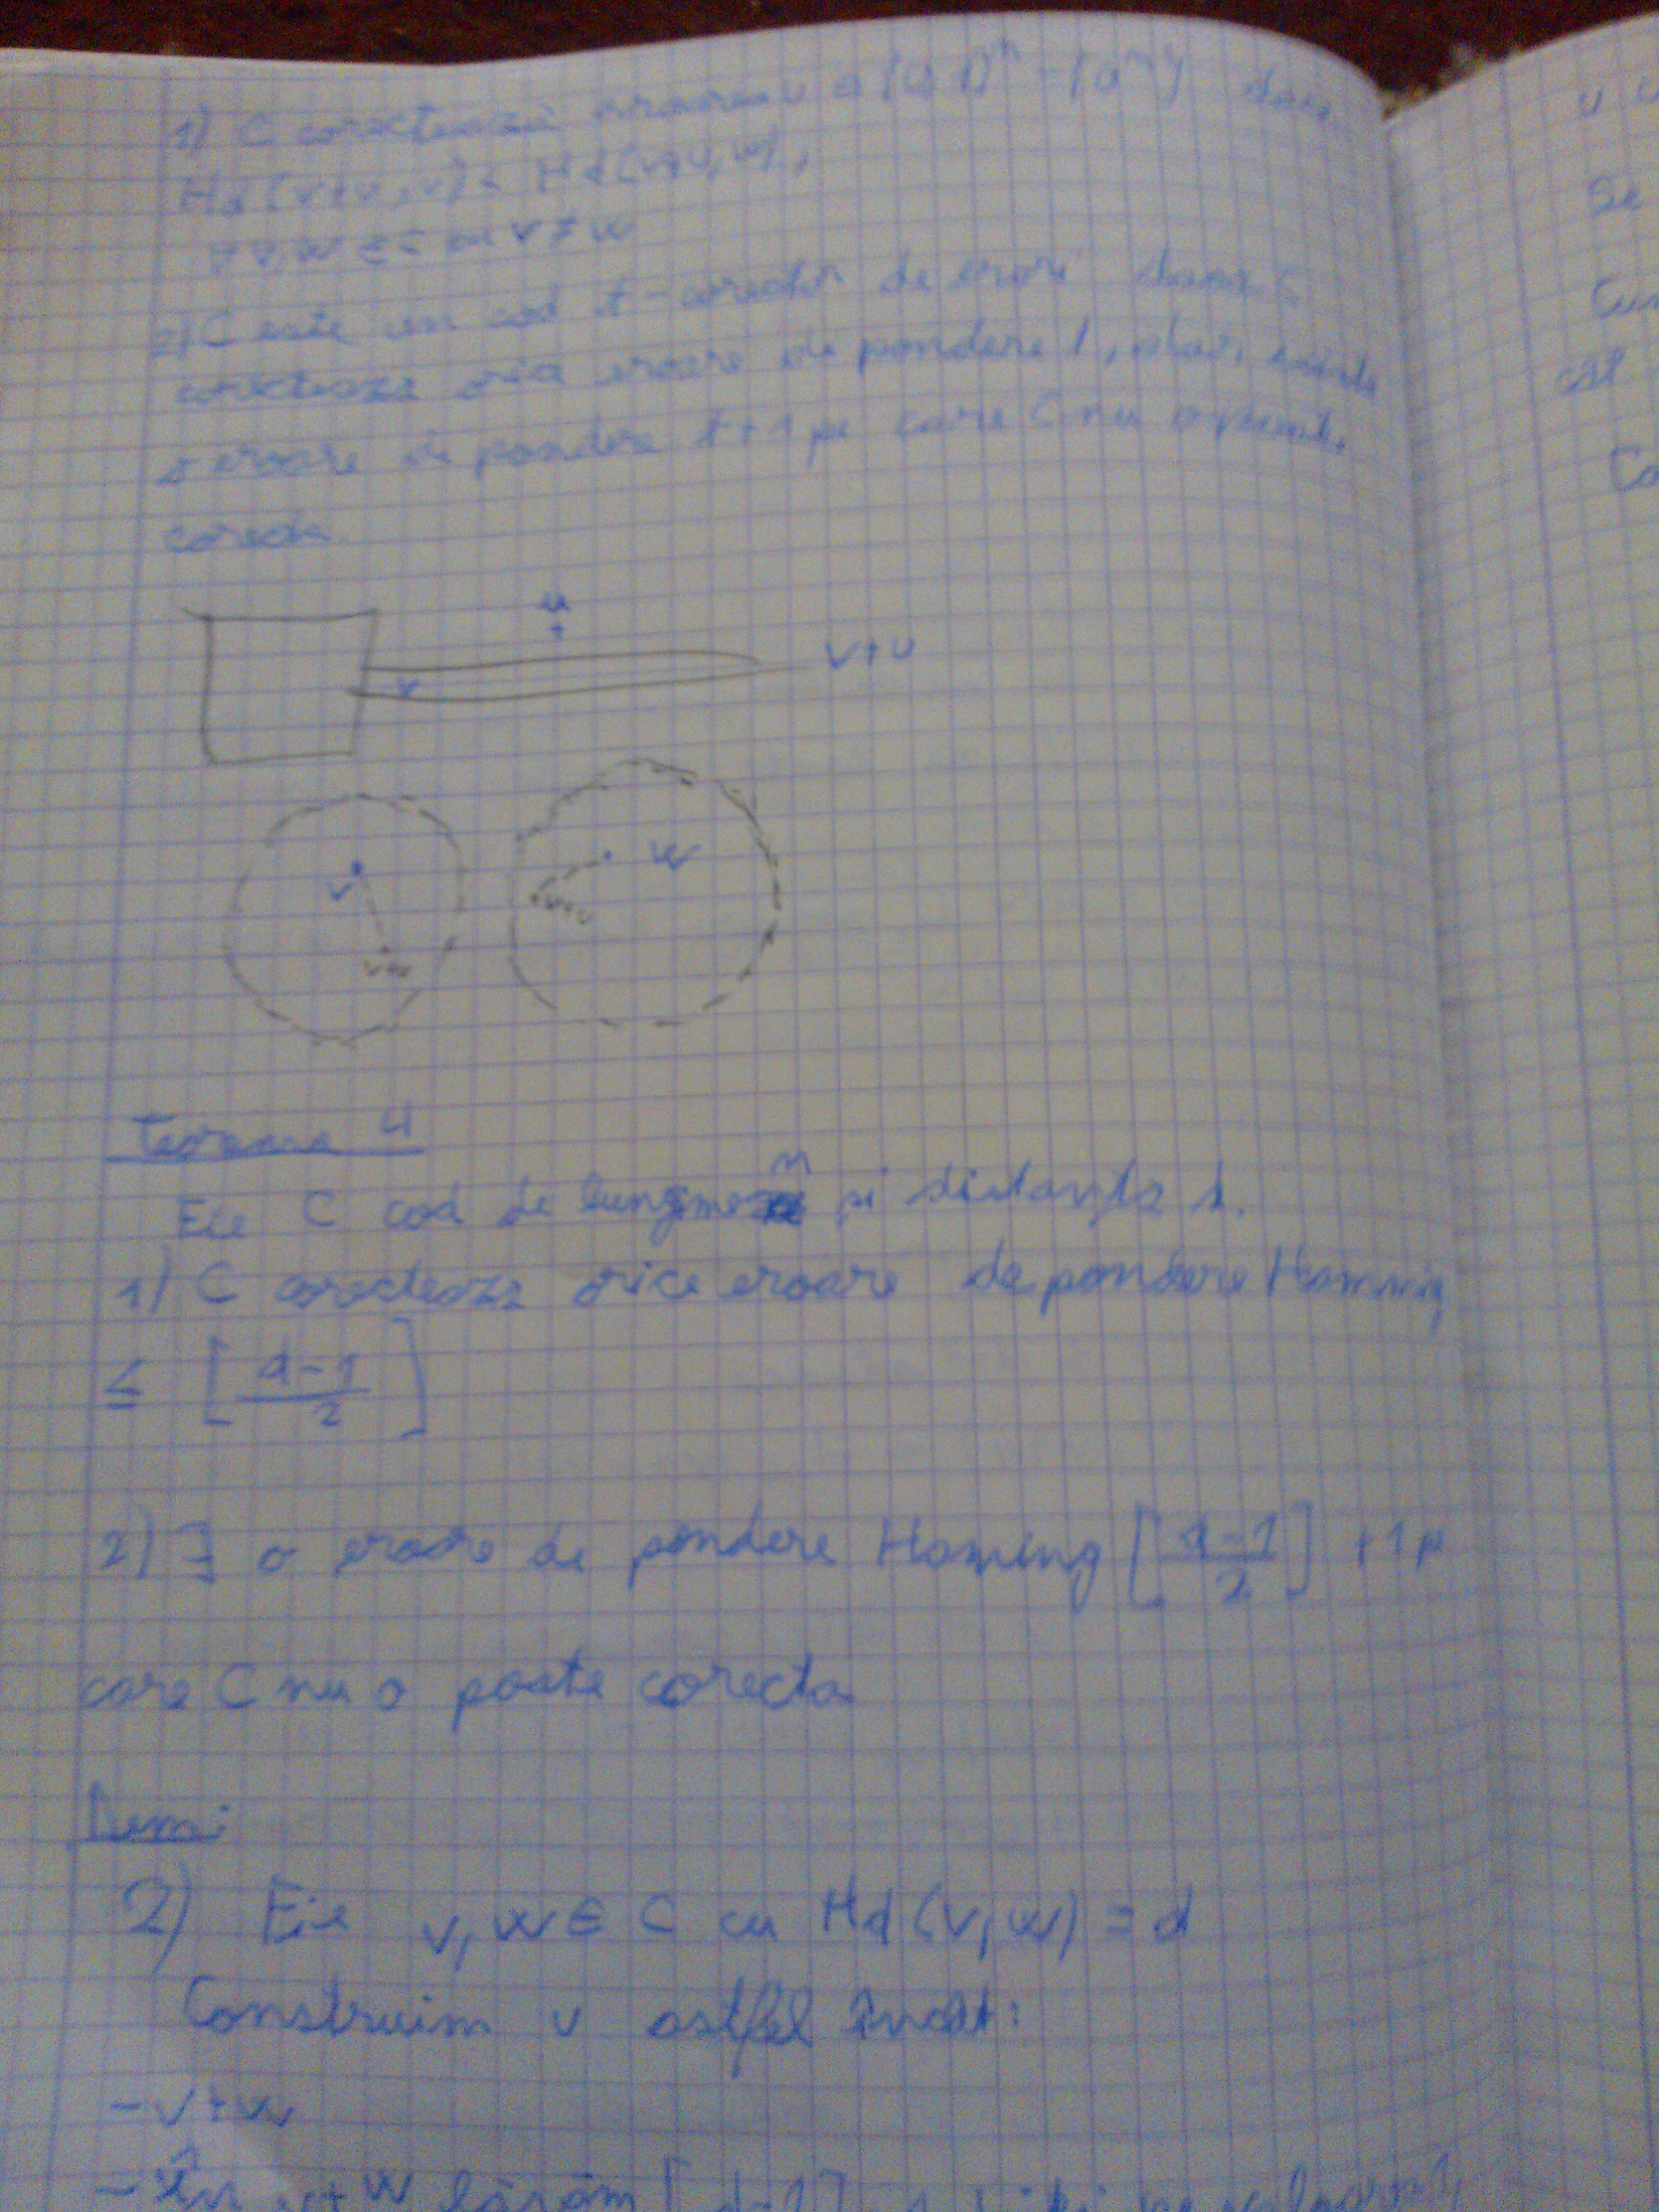 1) C corectează eroarea u ∈ {0,1}ⁿ - {0ⁿ} dacă
Hd(v+u,v) < Hd(v+u,w),
∀ v,w ∈ C cu v ≠ w
2) C este un cod t-corector de erori dacă C
corectează orice eroare de pondere t, dar exista
o eroare de pondere t+1 pe care C nu o poate
corecta
u
+
v
v+u
v
w
v+u
v+u
Teorema 4
Fie C cod de lungime n și distanța d.
1) C corectează orice eroare de pondere Hamming
≤ [ d-1 / 2 ]
2) ∃ o eroare de pondere Haming [ d-1 / 2 ] +1 pe
care C nu o poate corecta
Dem:
2) Fie v, w ∈ C cu Hd(v,w) = d
Construim u astfel încât:
- v+w
- În v+w lăsăm [ d-1 ]